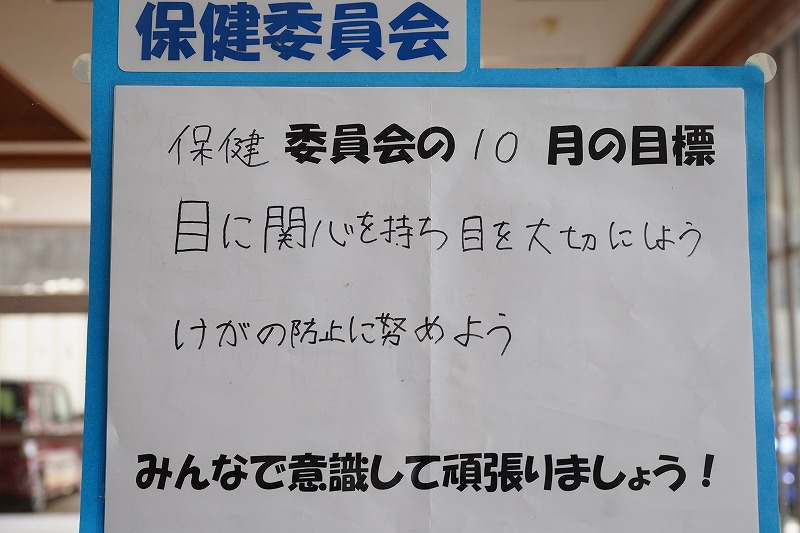 保健委員会
保健 委員会の10 月の目標
目に関心を持ち目を大切にしよう
けがの防止に努めよう
みんなで意識して頑張りましょう！